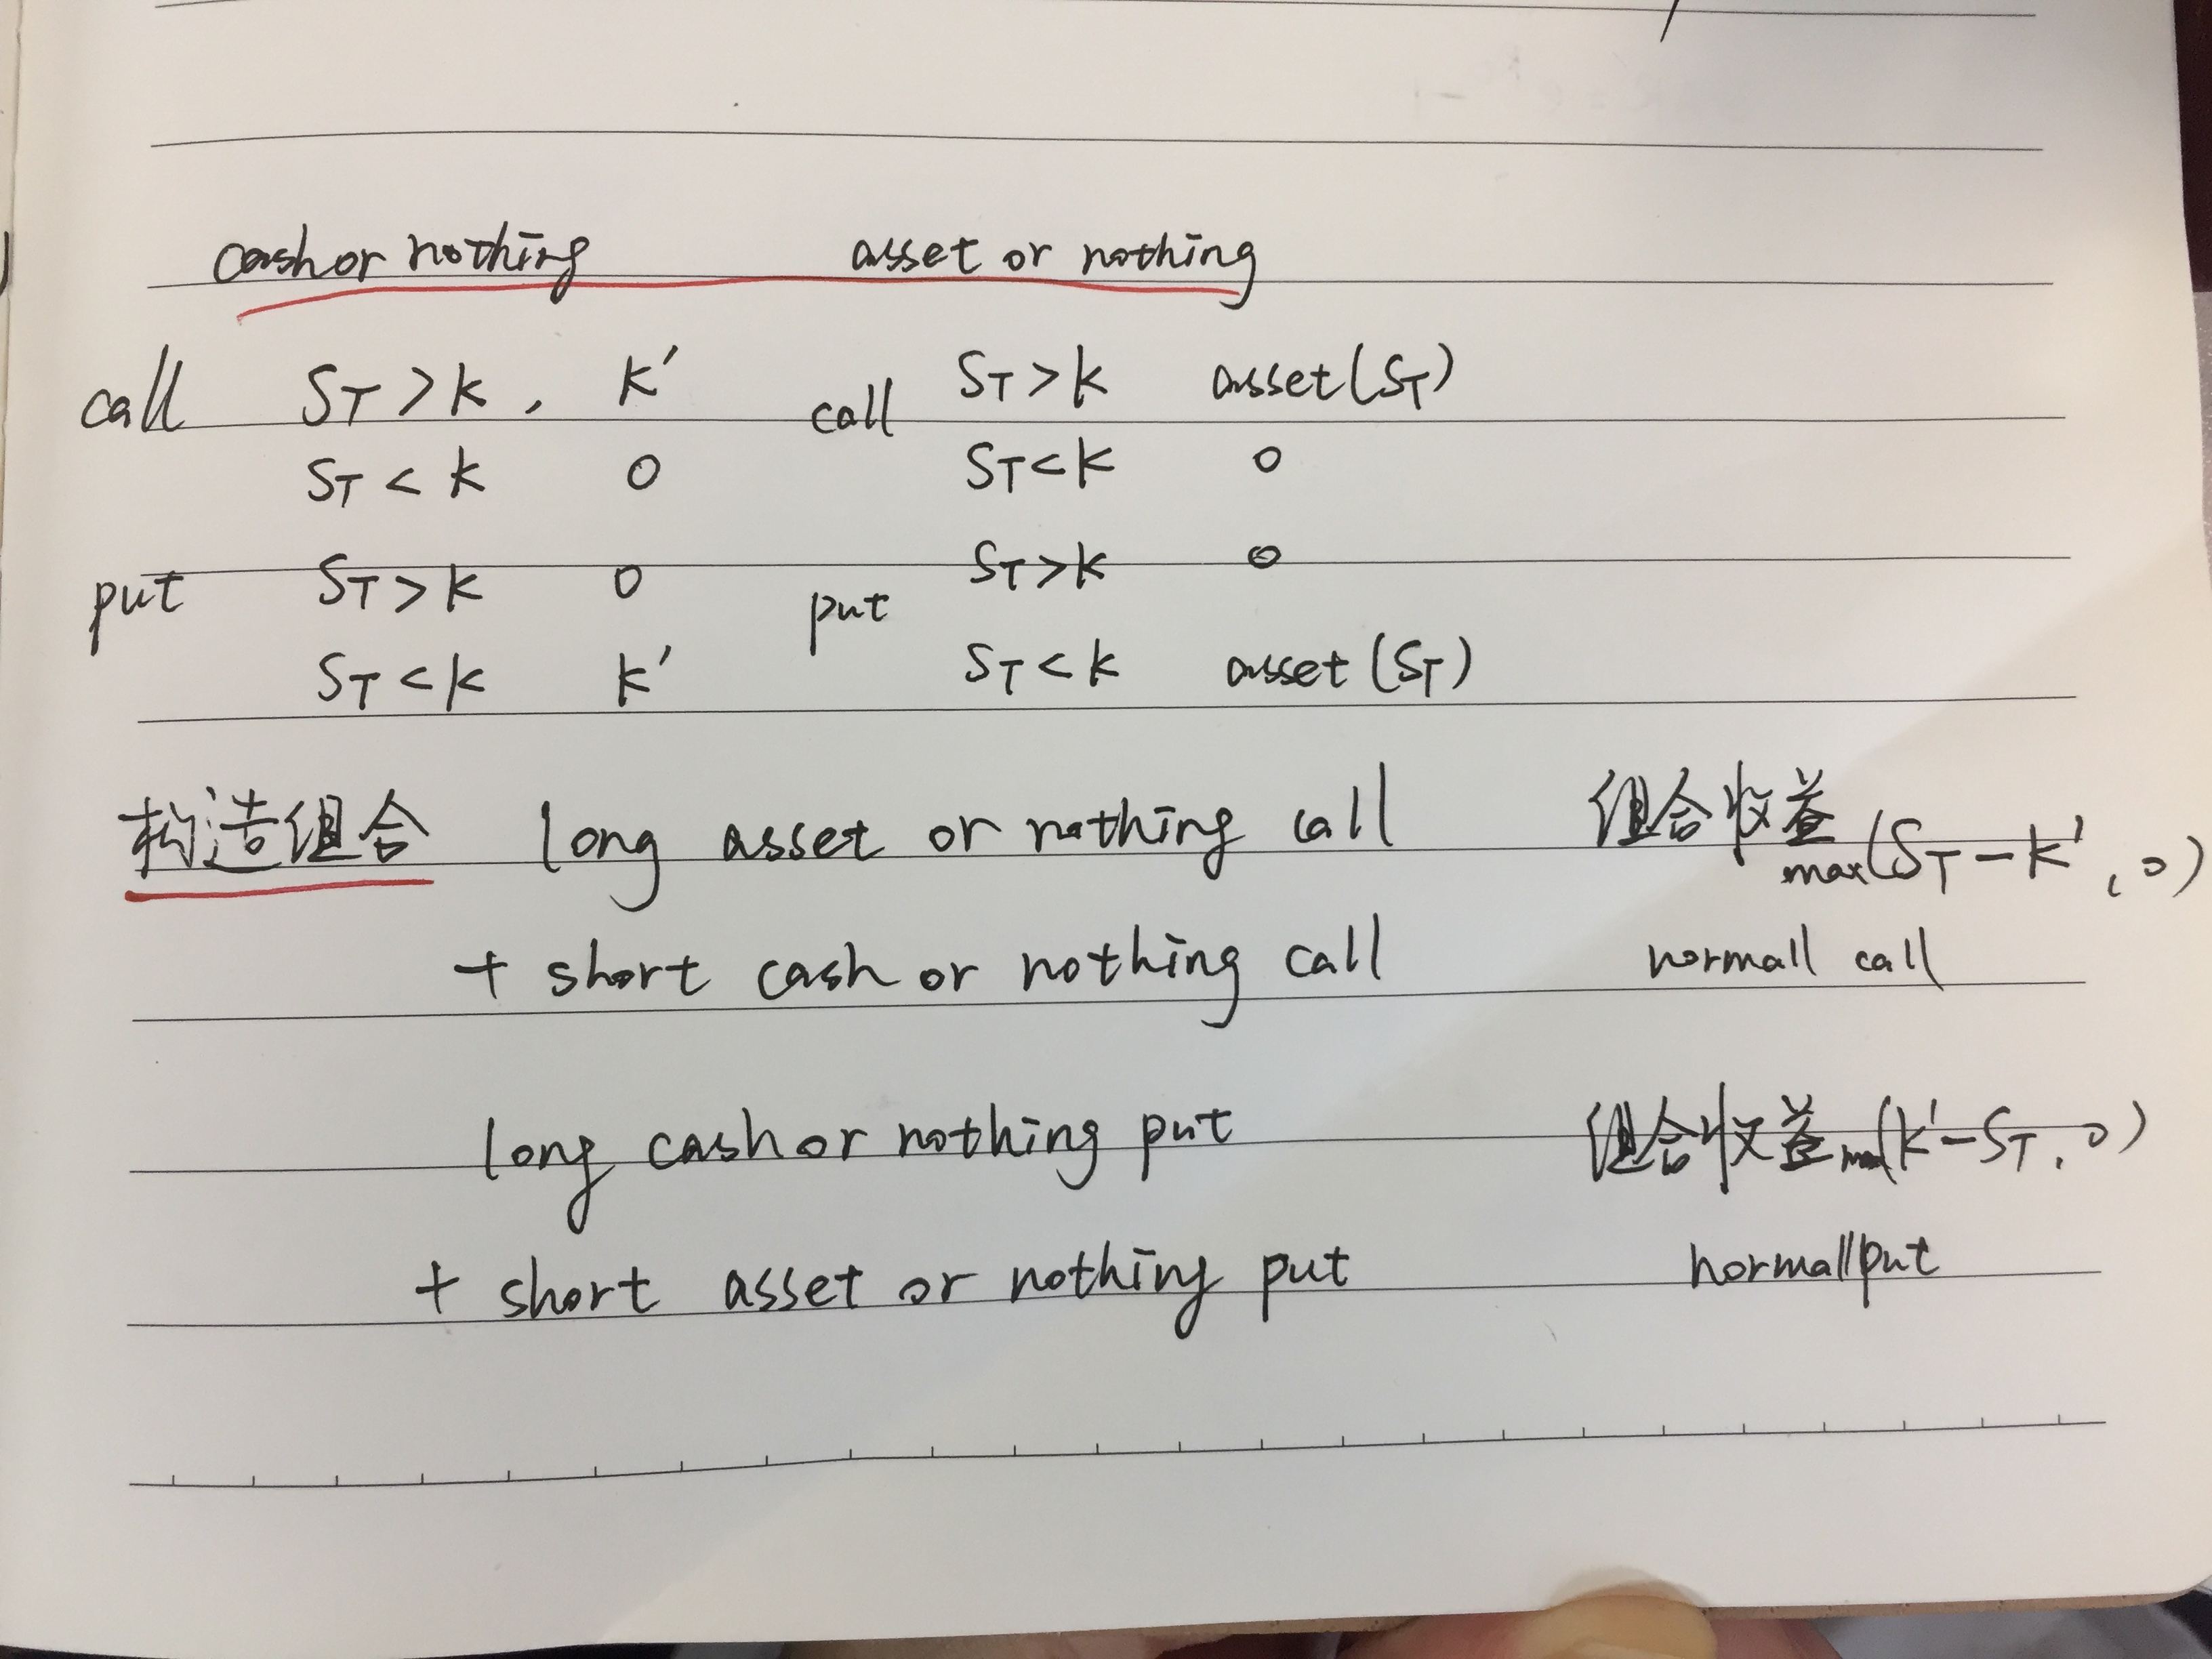 cash or nothing asset or nothing
call S_T > K , K' call S_T > K asset(S_T)
S_T < K 0 S_T < K 0
put S_T > K 0 put S_T > K 0
S_T < K K' S_T < K asset (S_T)
构造组合 long asset or nothing call 组合收益 max(S_T - K' , 0)
+ short cash or nothing call normall call
long cash or nothing put 组合收益 max(K' - S_T , 0)
+ short asset or nothing put normall put